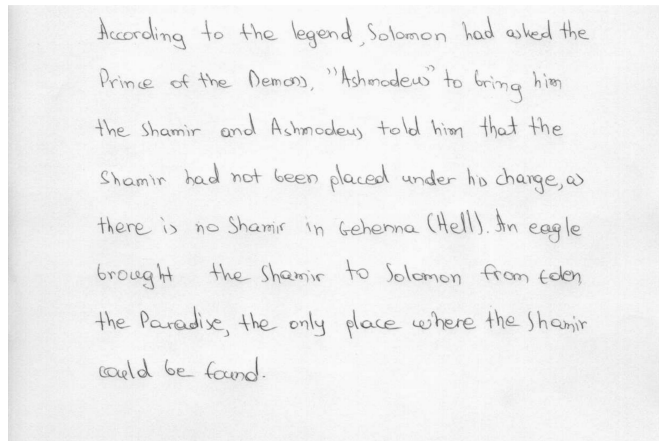 According to the legend, Solomon had asked the
Prince of the Demons, "Ashmodeus" to bring him
the shamir and Ashmodeus told him that the
Shamir had not been placed under his charge, as
there is no Shamir in Gehenna (Hell). An eagle
brought the Shamir to Solomon from Eden,
the Paradise, the only place where the Shamir
could be found.